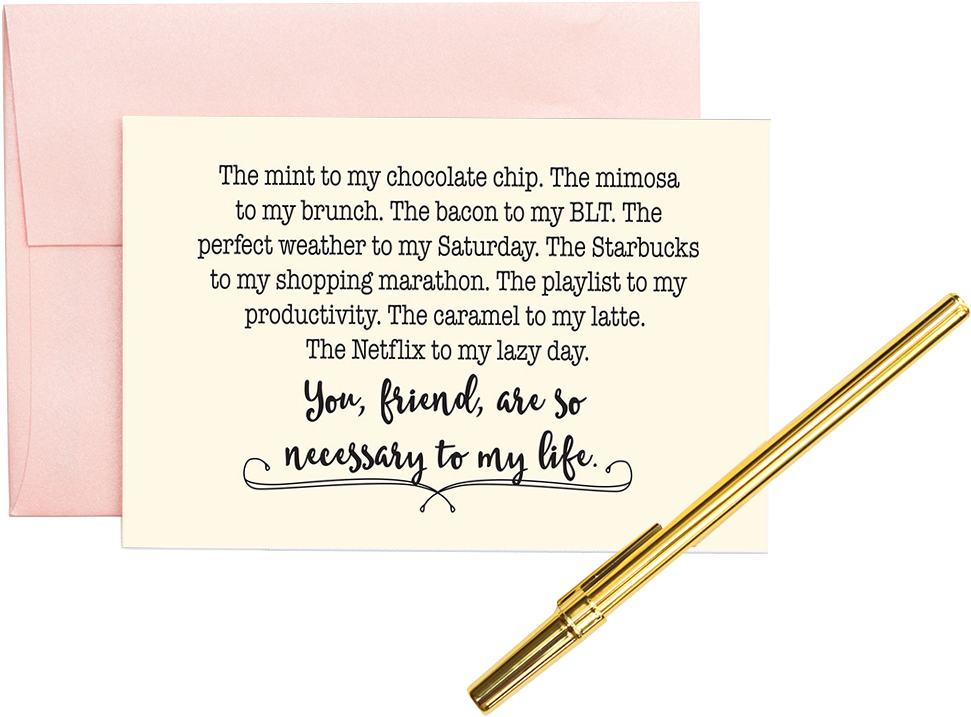 The mint to my chocolate chip. The mimosa
to my brunch. The bacon to my BLT. The
perfect weather to my Saturday. The Starbucks
to my shopping marathon. The playlist to my
productivity. The caramel to my latte.
The Netflix to my lazy day.
You, friend, are so
necessary to my life.